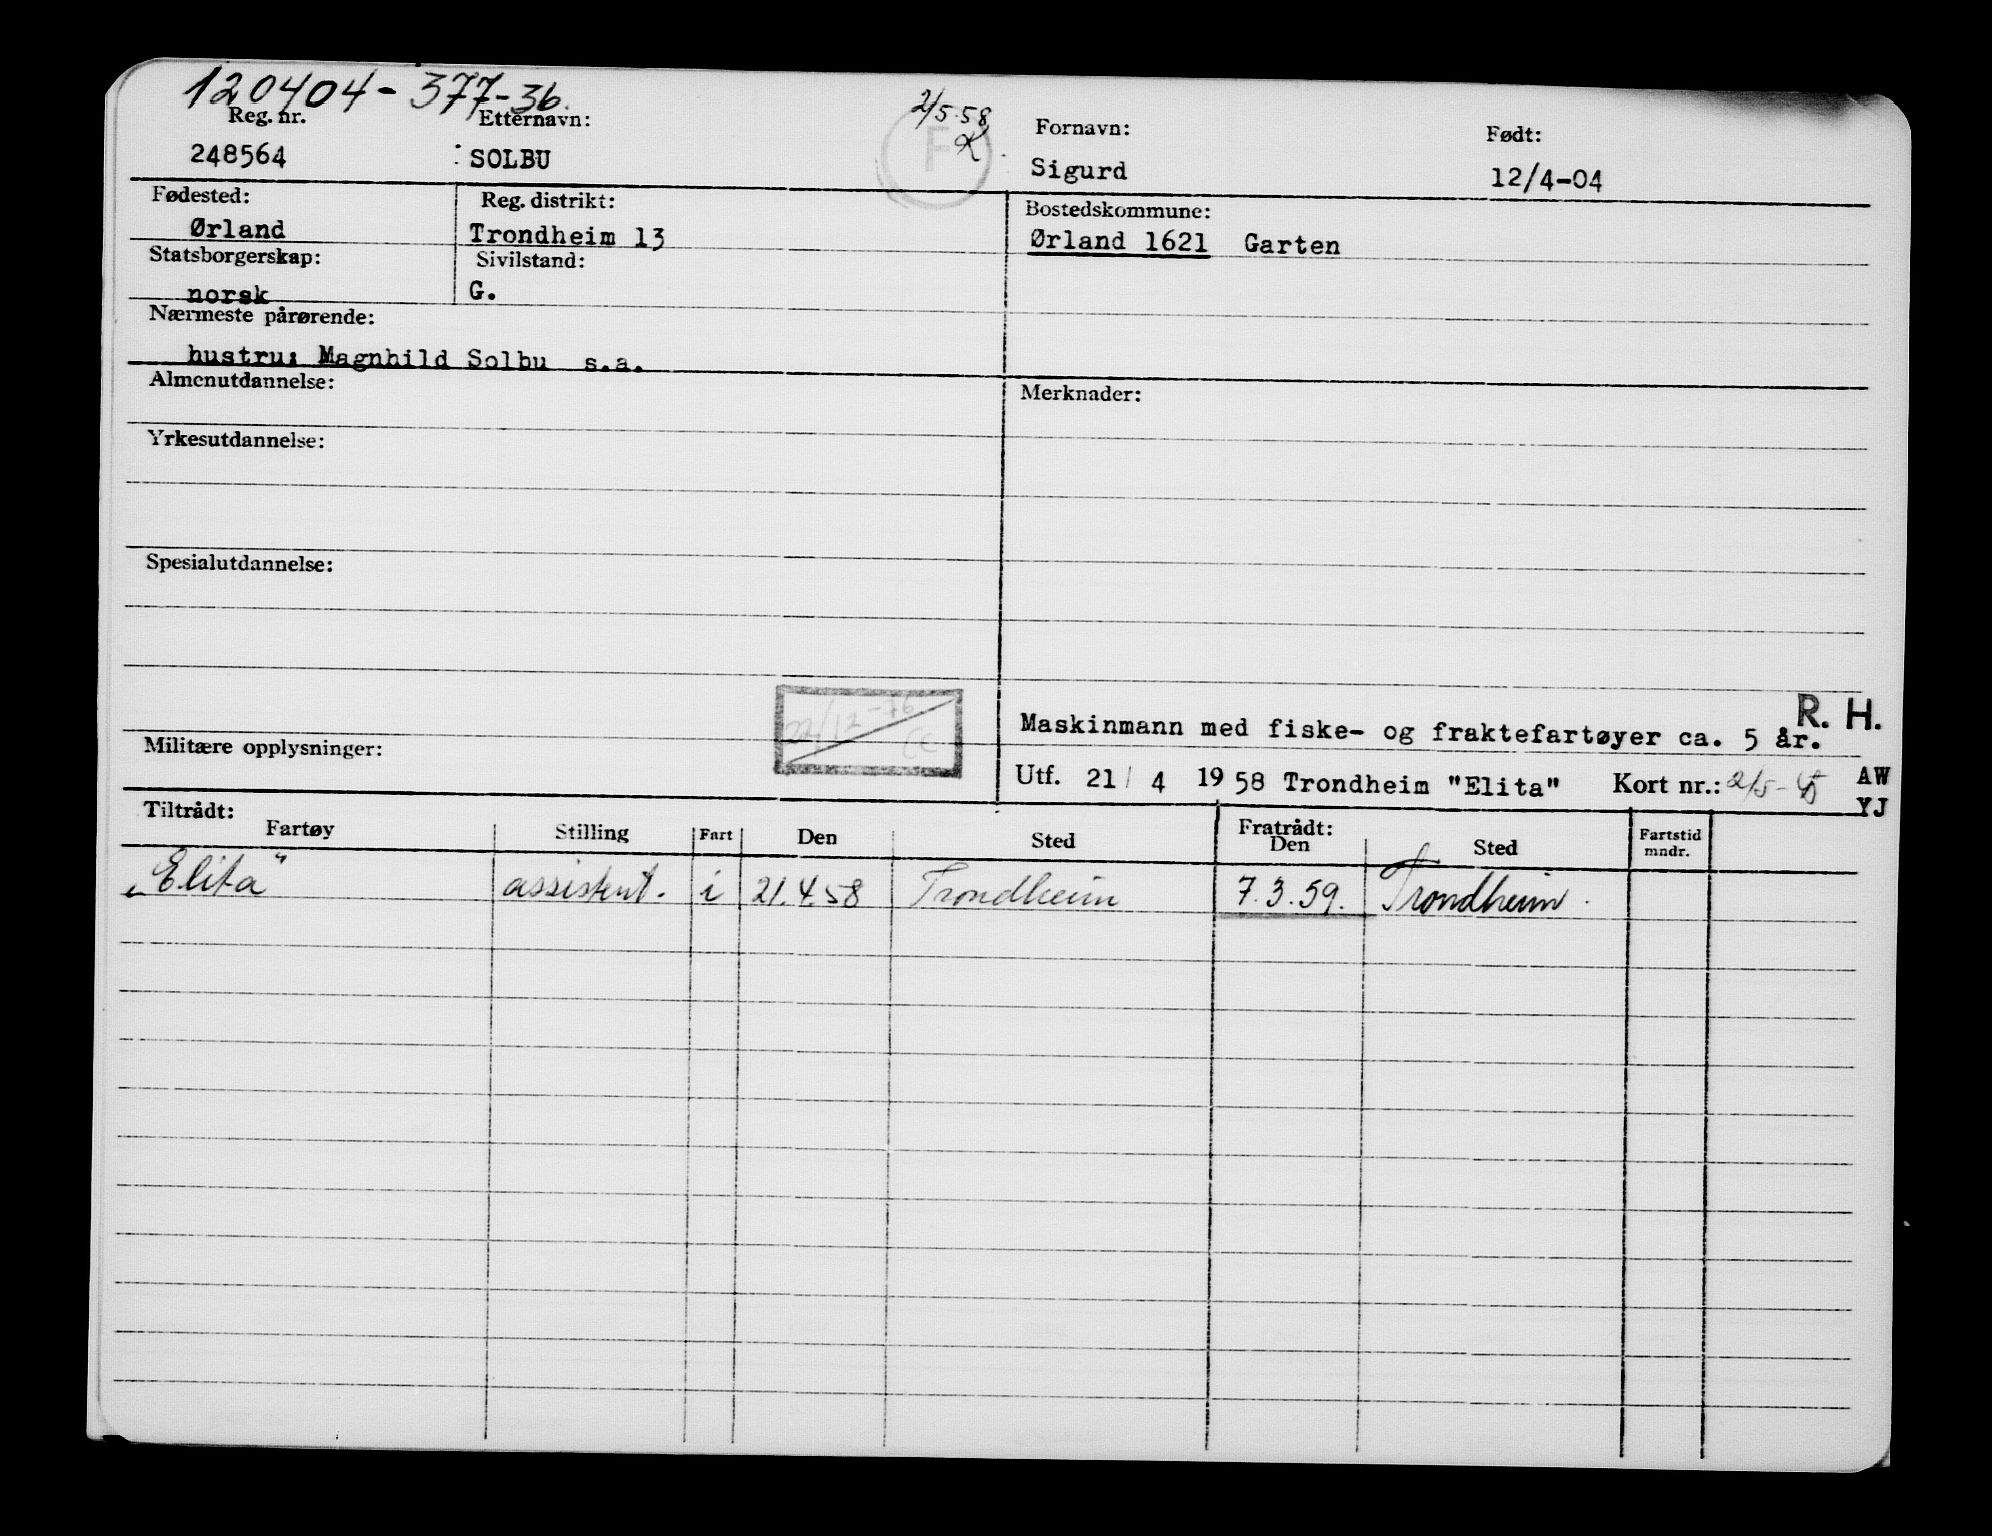 120404-377-36.
2/5.58
Reg. nr. Etternavn: Fornavn: Født:
248564 SOLBU F Sigurd 12/4-04
Fødested: Reg. distrikt: Bostedskommune:
Ørland Trondheim 13 Ørland 1621 Garten
Statsborgerskap: Sivilstand:
norsk G.
Nærmeste pårørende:
hustru: Magnhild Solbu s.a.
Almenutdannelse: Merknader:
Yrkesutdannelse:
Spesialutdannelse:
22/12-76
R. H.
Maskinmann med fiske- og fraktefartøyer ca. 5 år.
Militære opplysninger:
Utf. 21/ 4 1958 Trondheim "Elita" Kort nr.: 2/5- AW
YJ
Tiltrådt: Fratrådt:
Fartøy Stilling Fart Den Sted Den Sted Fartstid mndr.
„Elita" assistent. i 21.4.58 Trondheim 7.3.59. Trondheim.